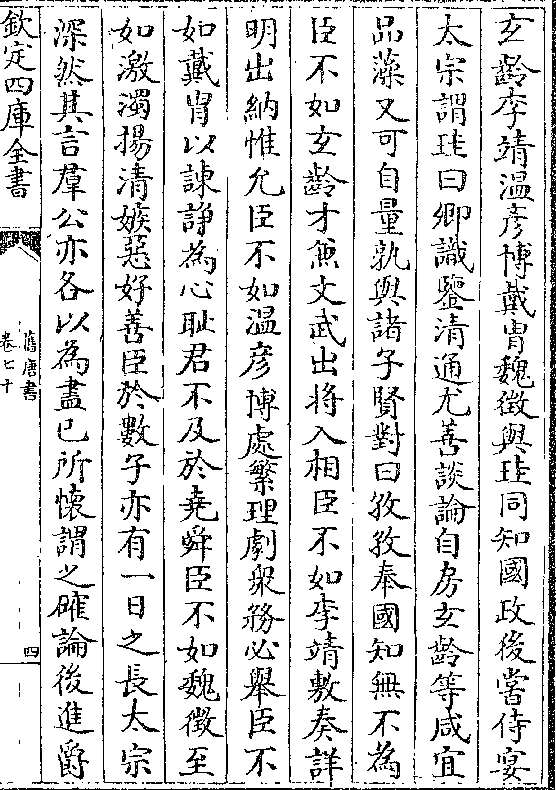 玄齡李靖溫彦博戴胄魏徵與珪同知國政後嘗侍宴
太宗謂珪曰卿識鑒清通尤善談論自房玄齡等咸宜
品藻又可自量孰與諸子賢對曰孜孜奉國知無不為
臣不如玄齡才兼文武出將入相臣不如李靖敷奏詳
明出納惟允臣不如溫彦博處繁理劇衆務必舉臣不
如戴胄以諫諍為心恥君不及於堯舜臣不如魏徵至
如激濁揚清嫉惡好善臣於數子亦有一日之長太宗
深然其言羣公亦各以為盡已所懷謂之確論後進爵
欽定四庫全書
舊唐書
卷七十
四